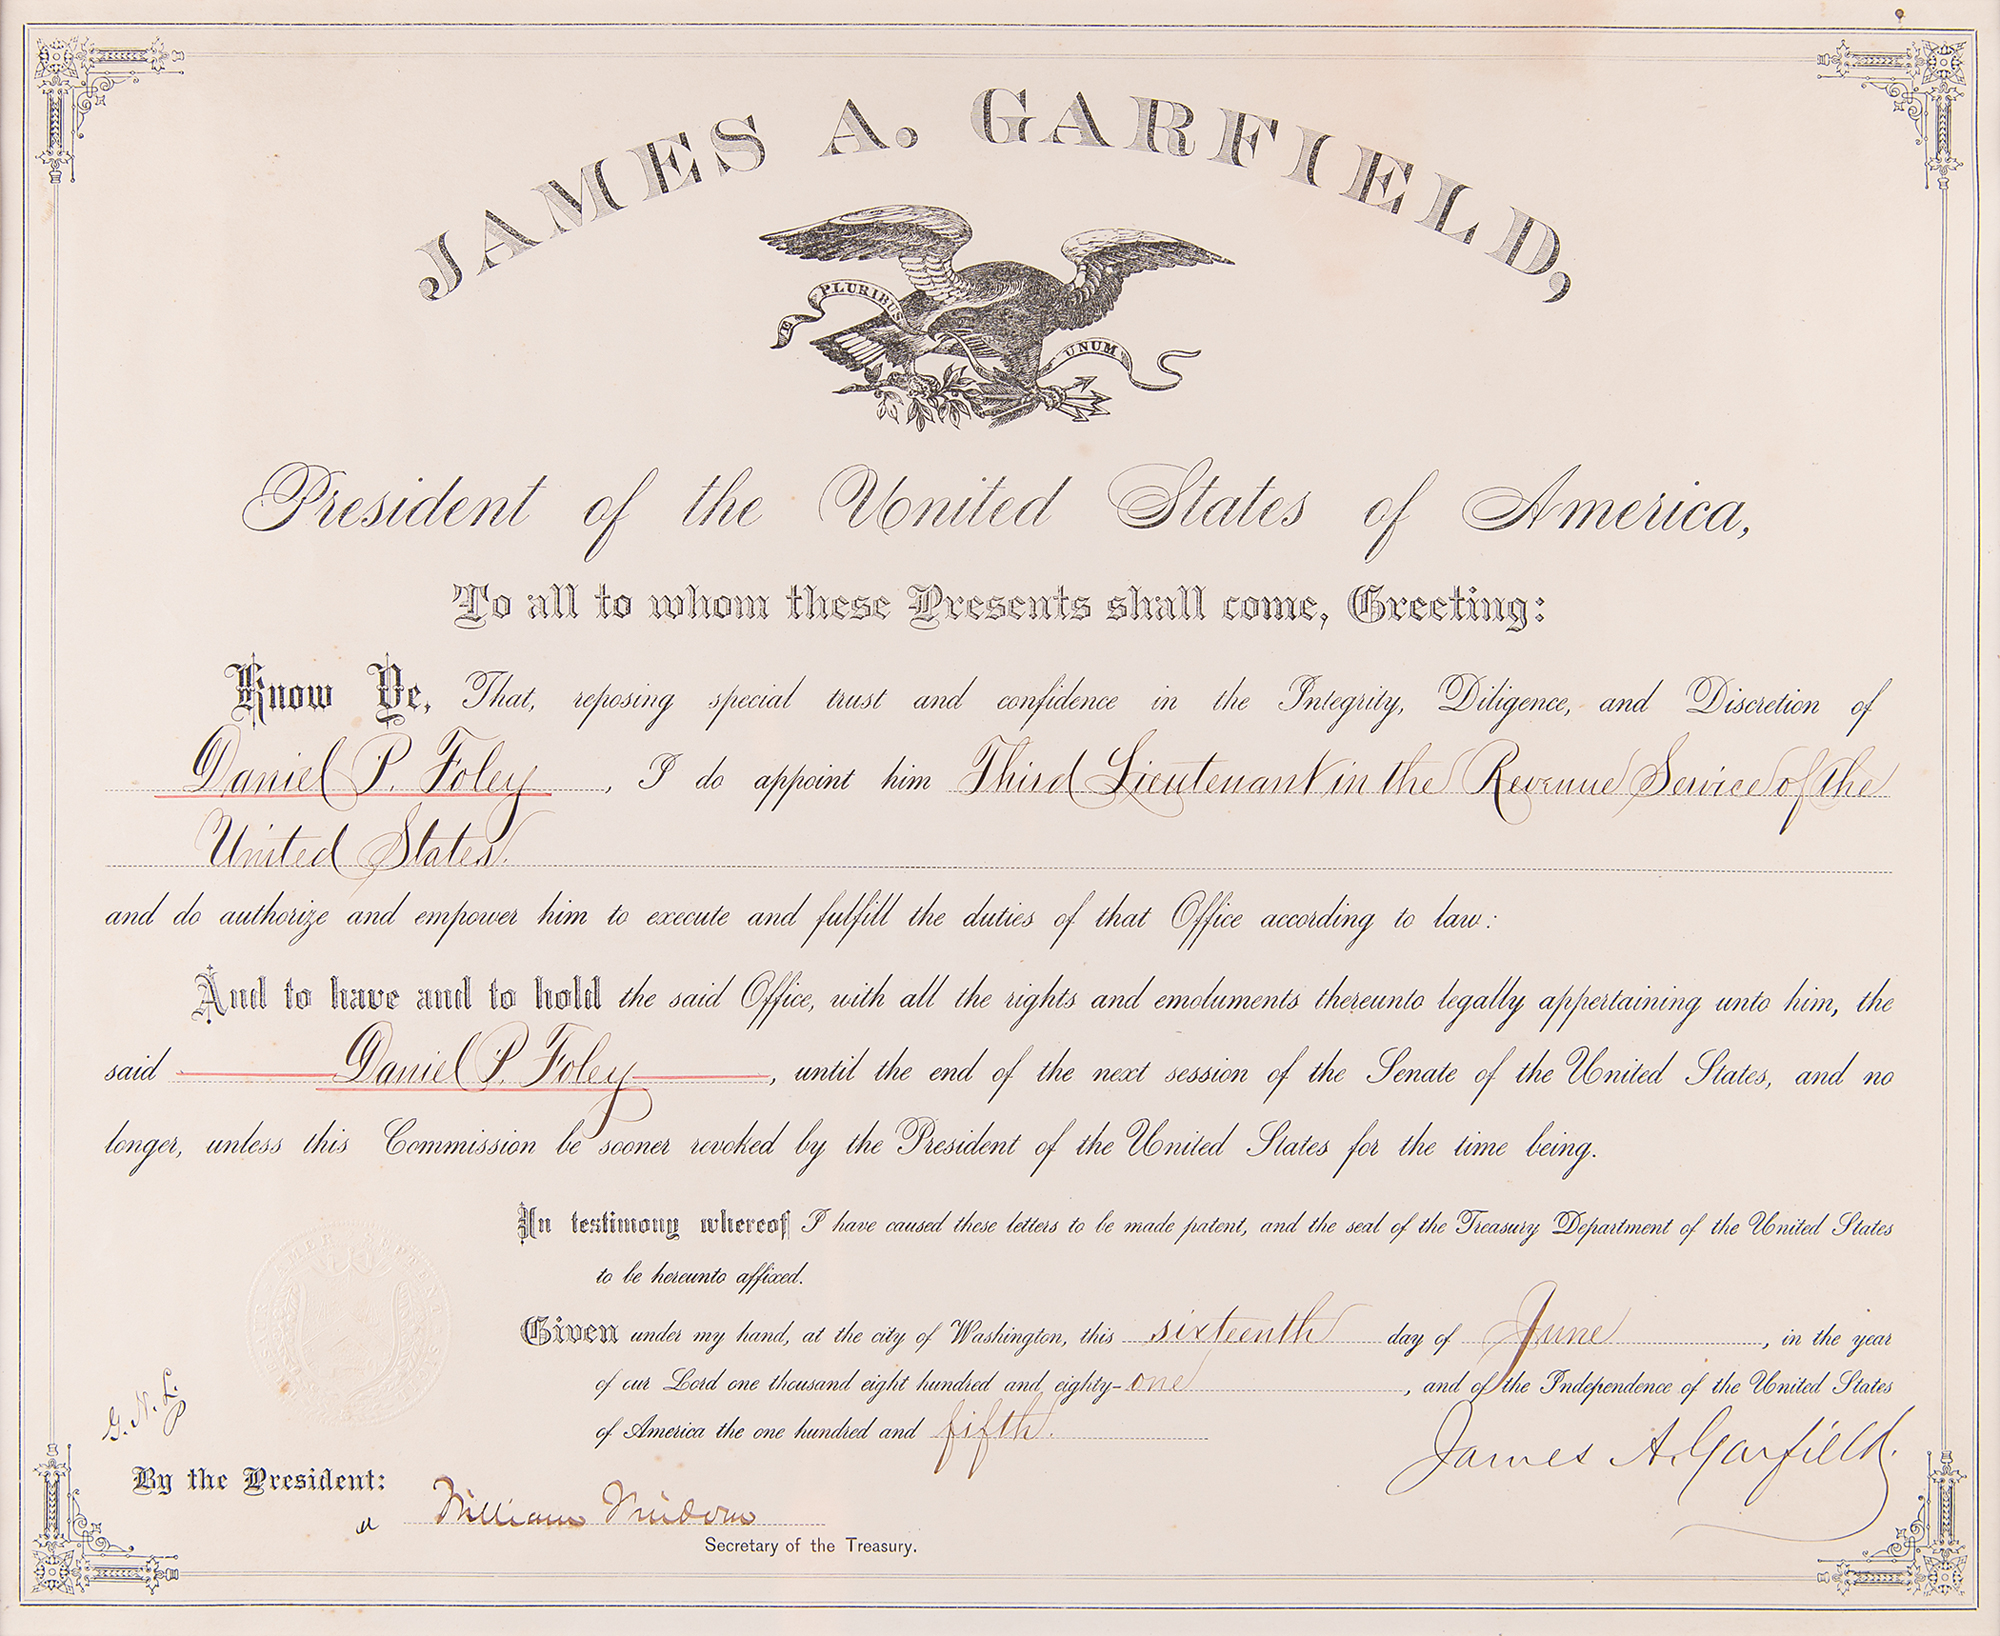 JAMES A. GARFIELD,
E PLURIBUS UNUM
President of the United States of America,
To all to whom these Presents shall come, Greeting:
Know Ye, That, reposing special trust and confidence in the Integrity, Diligence, and Discretion of
Daniel P. Foley, I do appoint him Third Lieutenant in the Revenue Service of the
United States.
and do authorize and empower him to execute and fulfill the duties of that Office according to law:
And to have and to hold the said Office, with all the rights and emoluments thereunto legally appertaining unto him, the
said Daniel P. Foley, until the end of the next session of the Senate of the United States, and no
longer, unless this Commission be sooner revoked by the President of the United States for the time being.
In testimony whereof I have caused these letters to be made patent, and the seal of the Treasury Department of the United States
to be hereunto affixed.
Given under my hand, at the city of Washington, this sixteenth day of June, in the year
of our Lord one thousand eight hundred and eighty-one, and of the Independence of the United States
of America the one hundred and fifth.
James A. Garfield.
G. N. L.
By the President:
William Windom
Secretary of the Treasury.